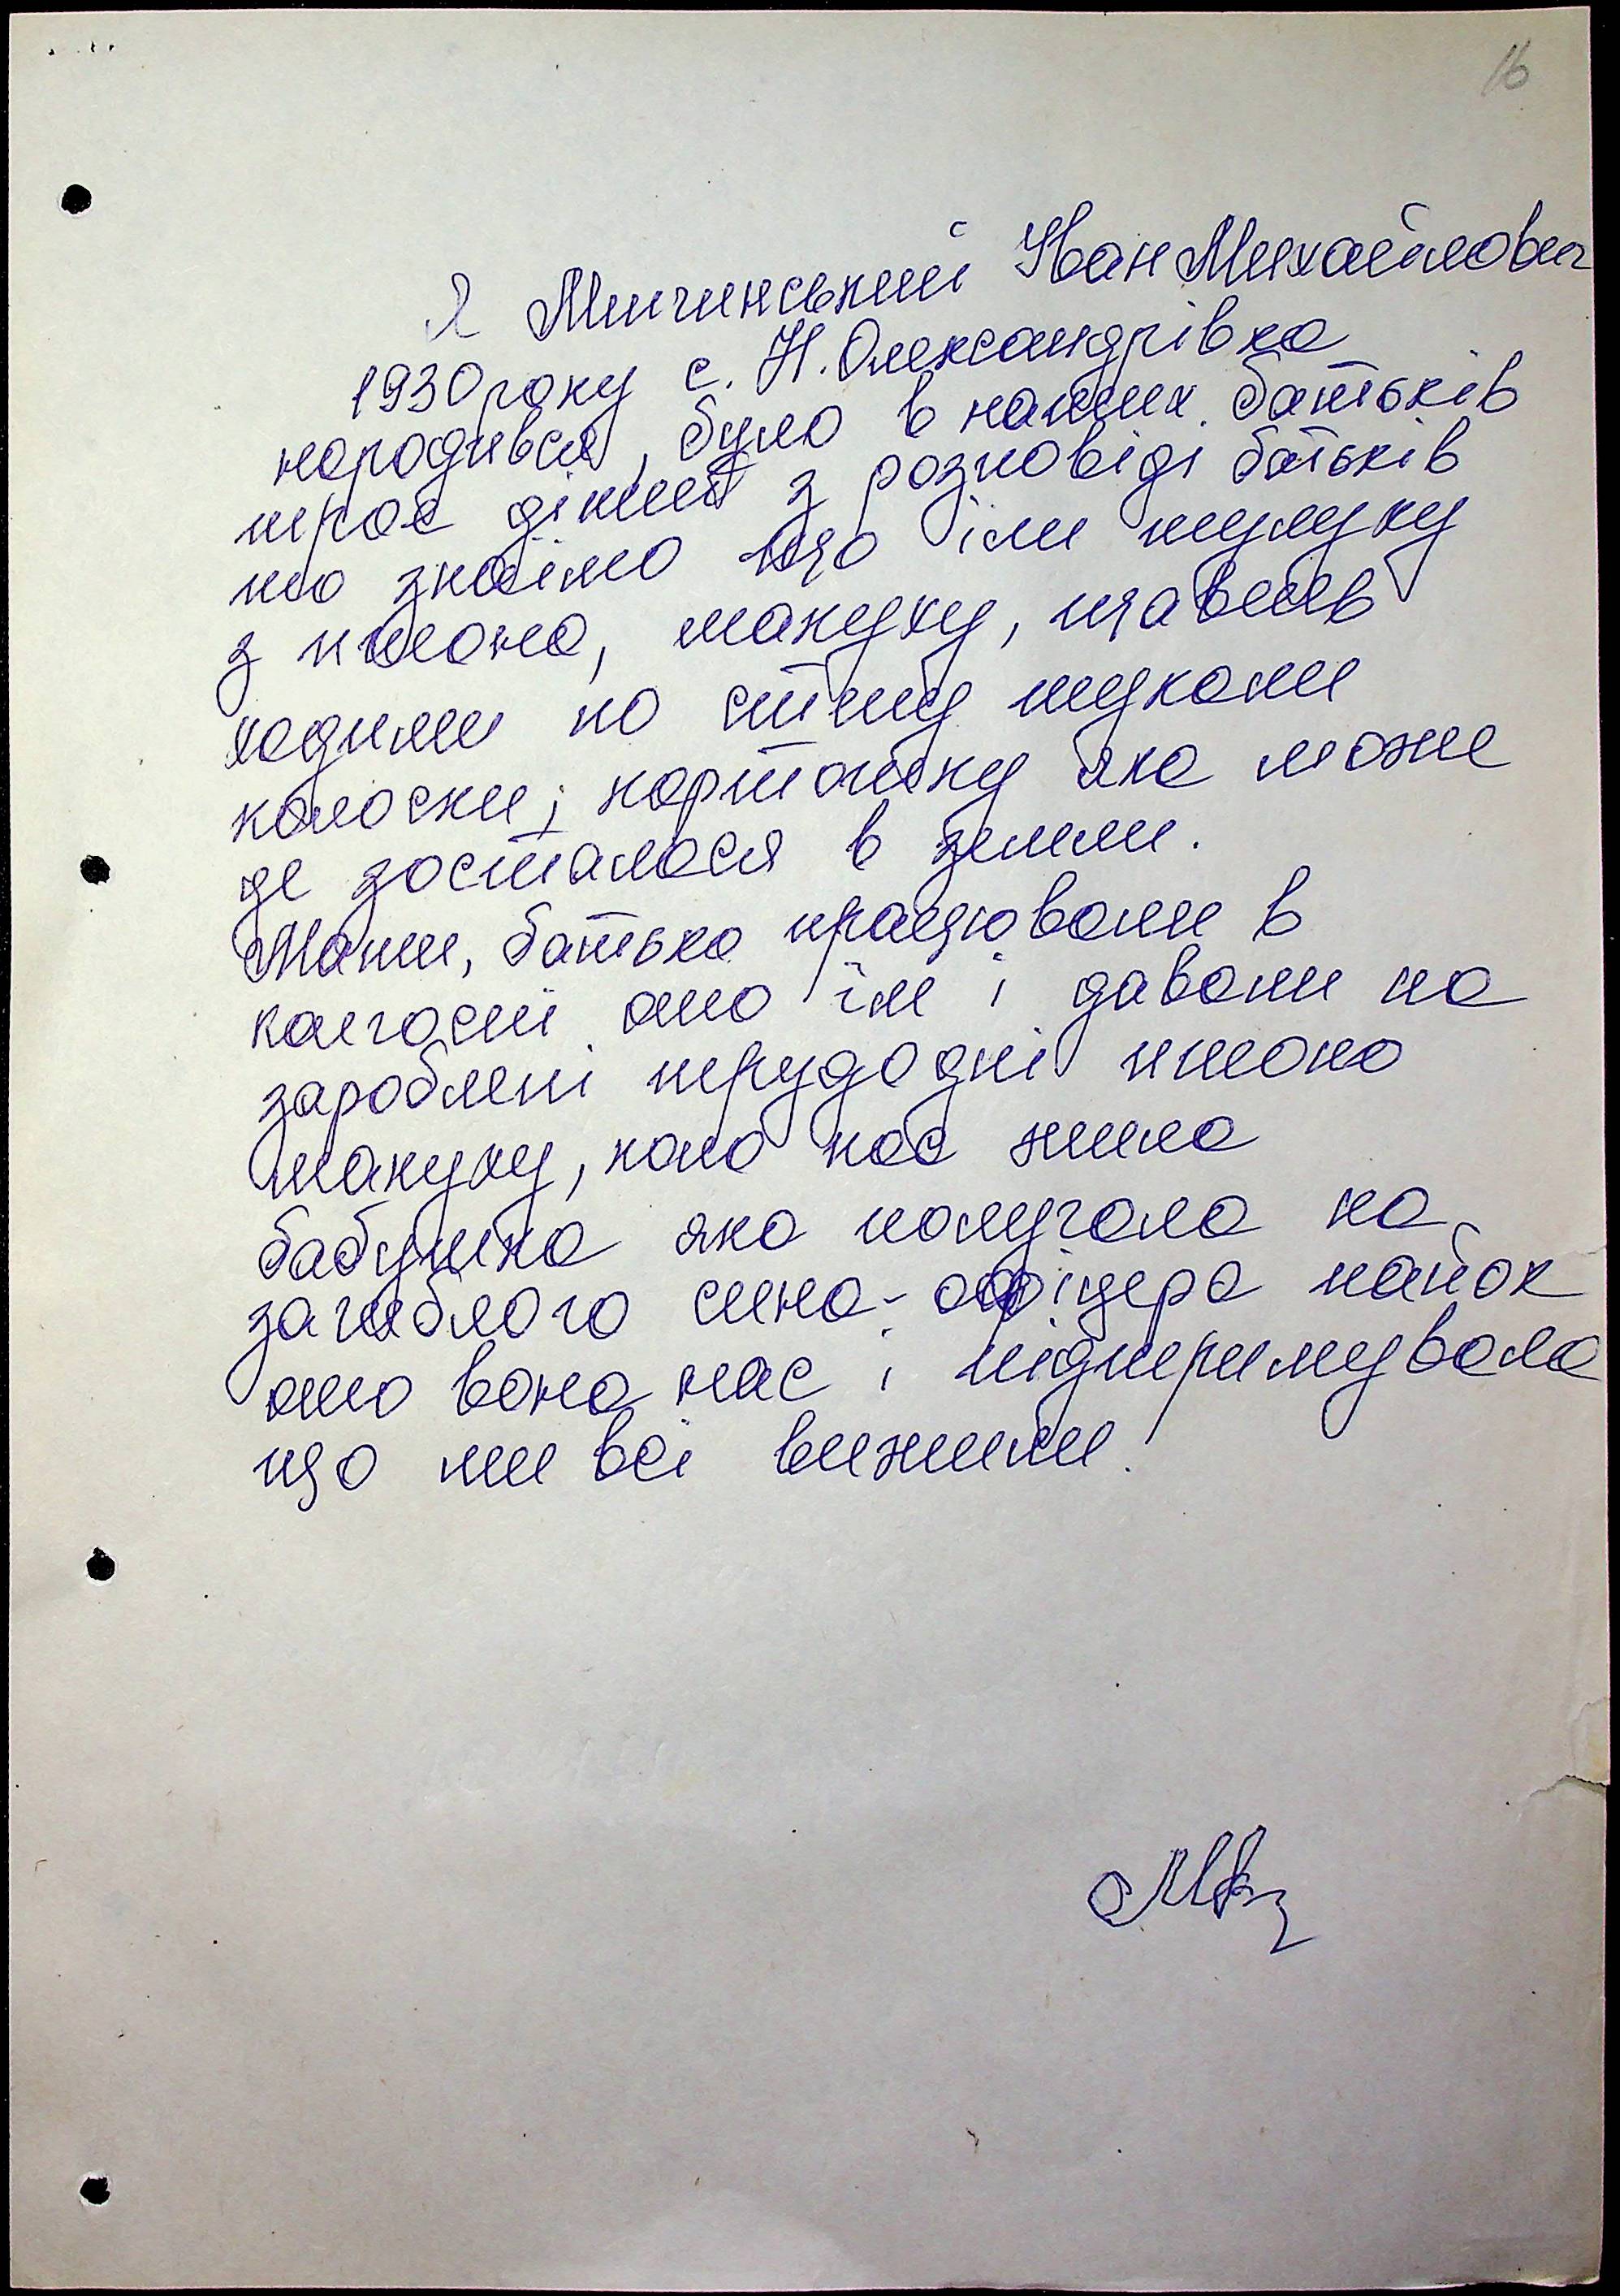 16
Я Мичинський Іван Михайлович
1930 року с. Н. Олександрівка
народився, було в наших батьків
троє дітей з розповіді батьків
то знаїмо що їли шулуху
з пшона, макуху, щавель
ходили по степу шукали
колоски, картошку яка може
де зосталася в земли.
Мати, батько працювали в
колгоспі, ото їм і давали на
зароблені трудодні пшоно
макуху, коло нас жила
бабушка яка получала на
загиблого сина-офіцера пайок
ото вона нас і підтримувала
що ми всі вижили.